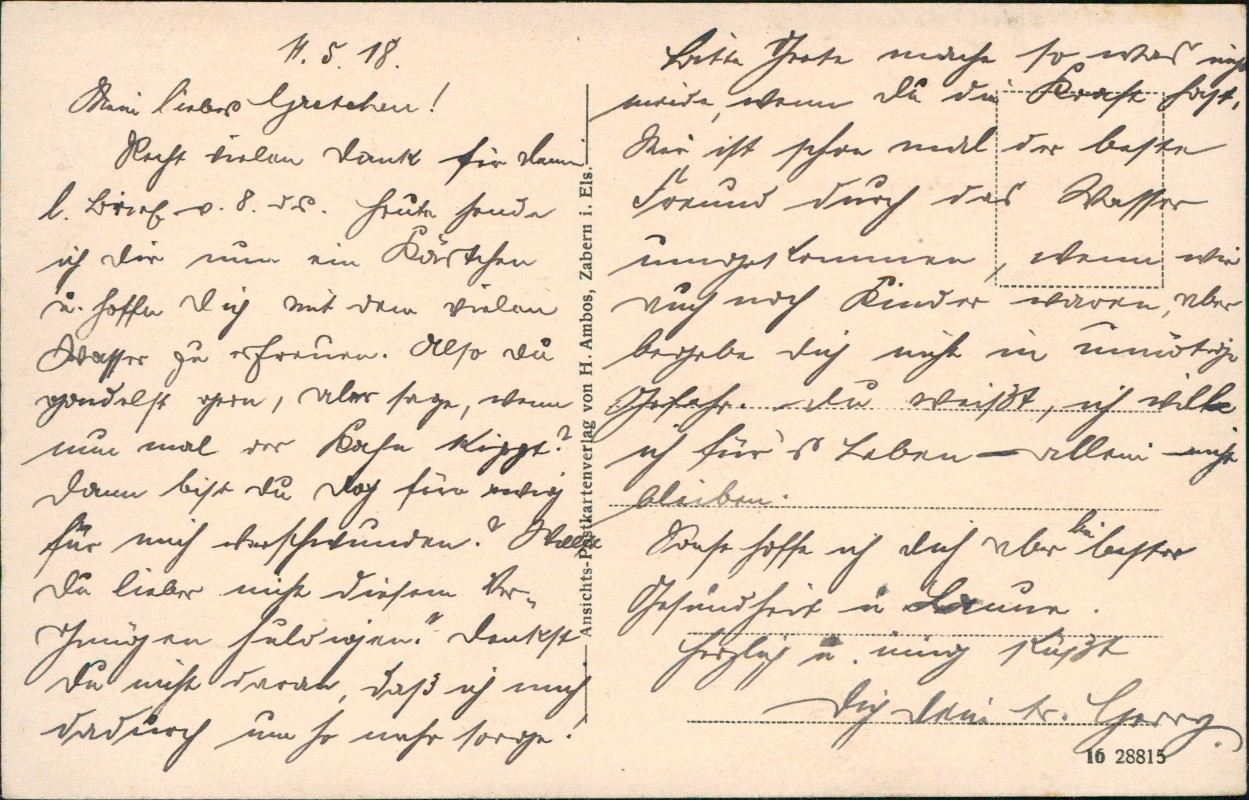 11.5.18.
Mein liebes Gretchen!
Recht vielen Dank für Deinen
l. Brief v. 8. ds. Heute sende
ich Dir nun ein Kärtchen
u. hoffe Dich mit dem vielen
Wasser zu erfreuen. Also Du
gondelst gern, aber sage, wenn
nun mal der Kahn kippt?
Dann bist Du doch für ewig
für mich verschwunden? Wolle
Du lieber nicht diesem Ver-
gnügen huldigen." Denkst
Du nicht daran, daß ich mich
dadurch um so mehr sorge!
Bitte Grete mache so was nicht
meide, wenn Du die Kraft hast,
Mir ist schon mal der beste
Freund durch das Wasser
umgekommen, wenn wir
auch noch Kinder waren, aber
begebe Dich nicht in unnötige
Gefahr. Du weißt, ich will
ich für's Leben – allein nicht
bleiben.
Sonst hoffe ich Dich aber bei bester
Gesundheit u Laune.
Herzlich u. innig küßt
Dich Dein tr. Georg.
Ansichts-Postkartenverlag von H. Ambos, Zabern i. Els.
16 28815